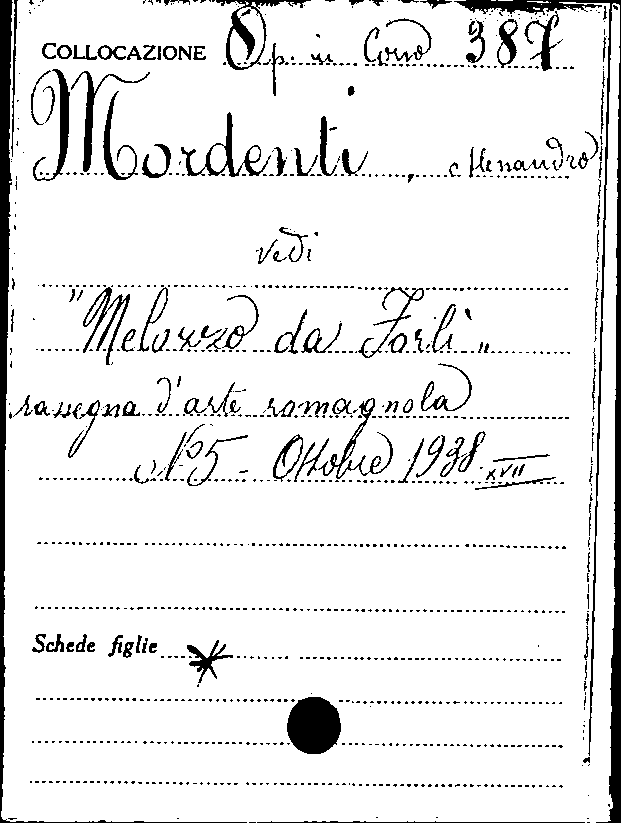 COLLOCAZIONE Op. in Corso 387
Mordenti, Alessandro
vedi
"Melozzo da Forlì"
rassegna d'arte romagnola
N° 5 - Ottobre 1938 XVII
Schede figlie